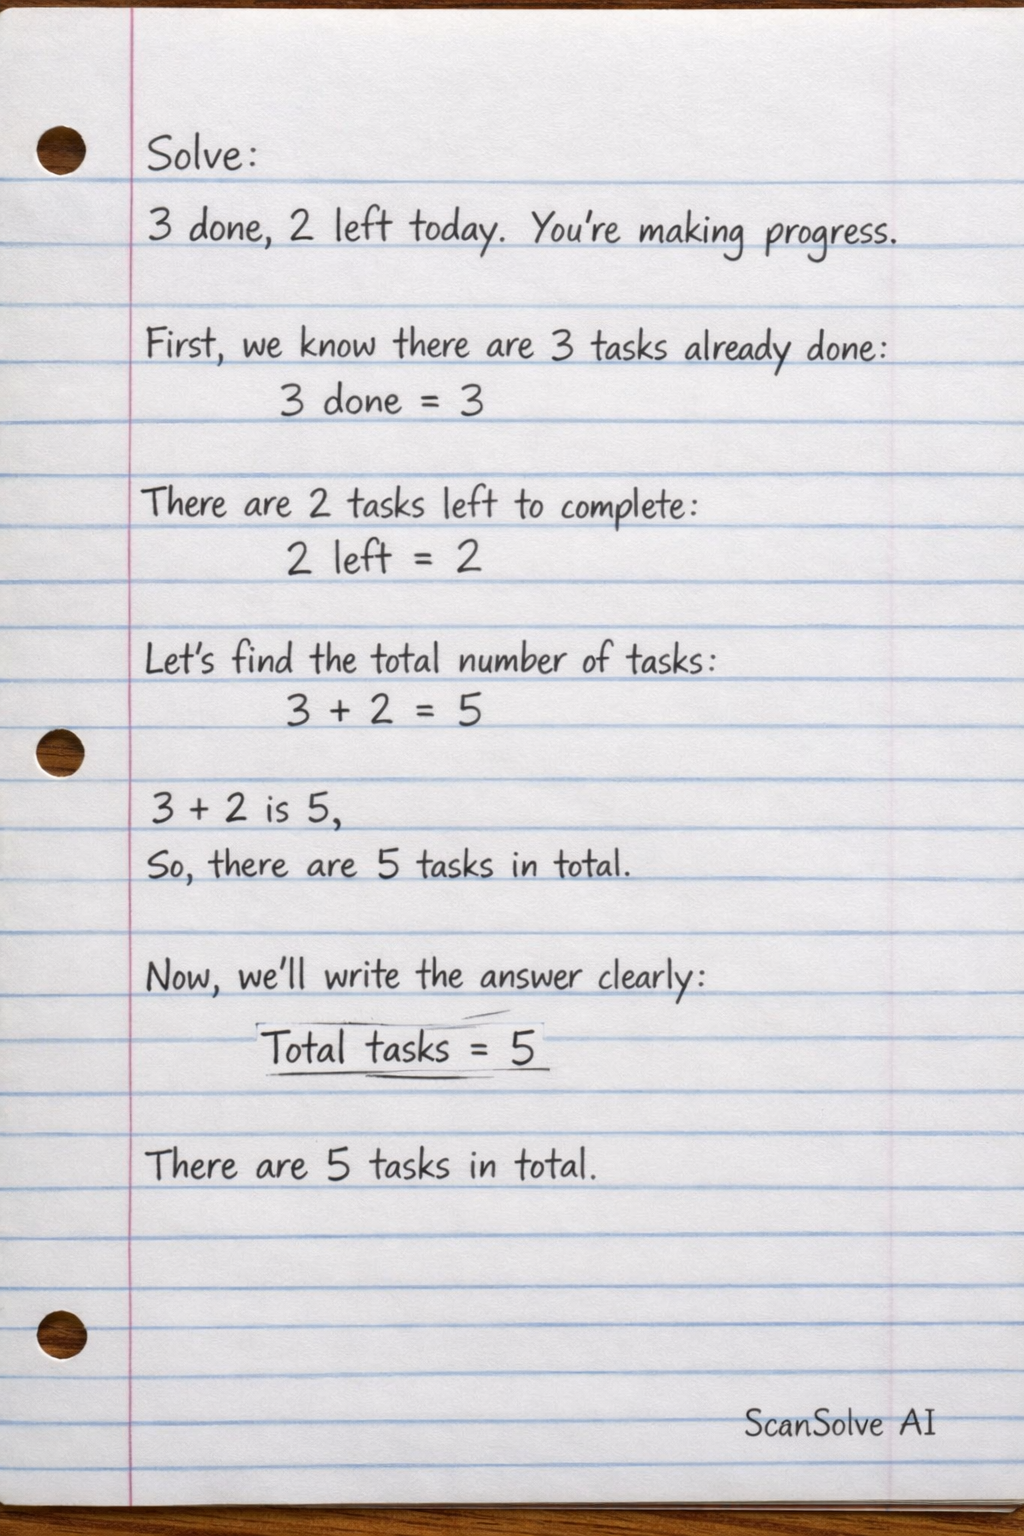 Solve:
3 done, 2 left today. You're making progress.
First, we know there are 3 tasks already done:
3 done = 3
There are 2 tasks left to complete:
2 left = 2
Let's find the total number of tasks:
3 + 2 = 5
3 + 2 is 5,
So, there are 5 tasks in total.
Now, we'll write the answer clearly:
Total tasks = 5
There are 5 tasks in total.
ScanSolve AI